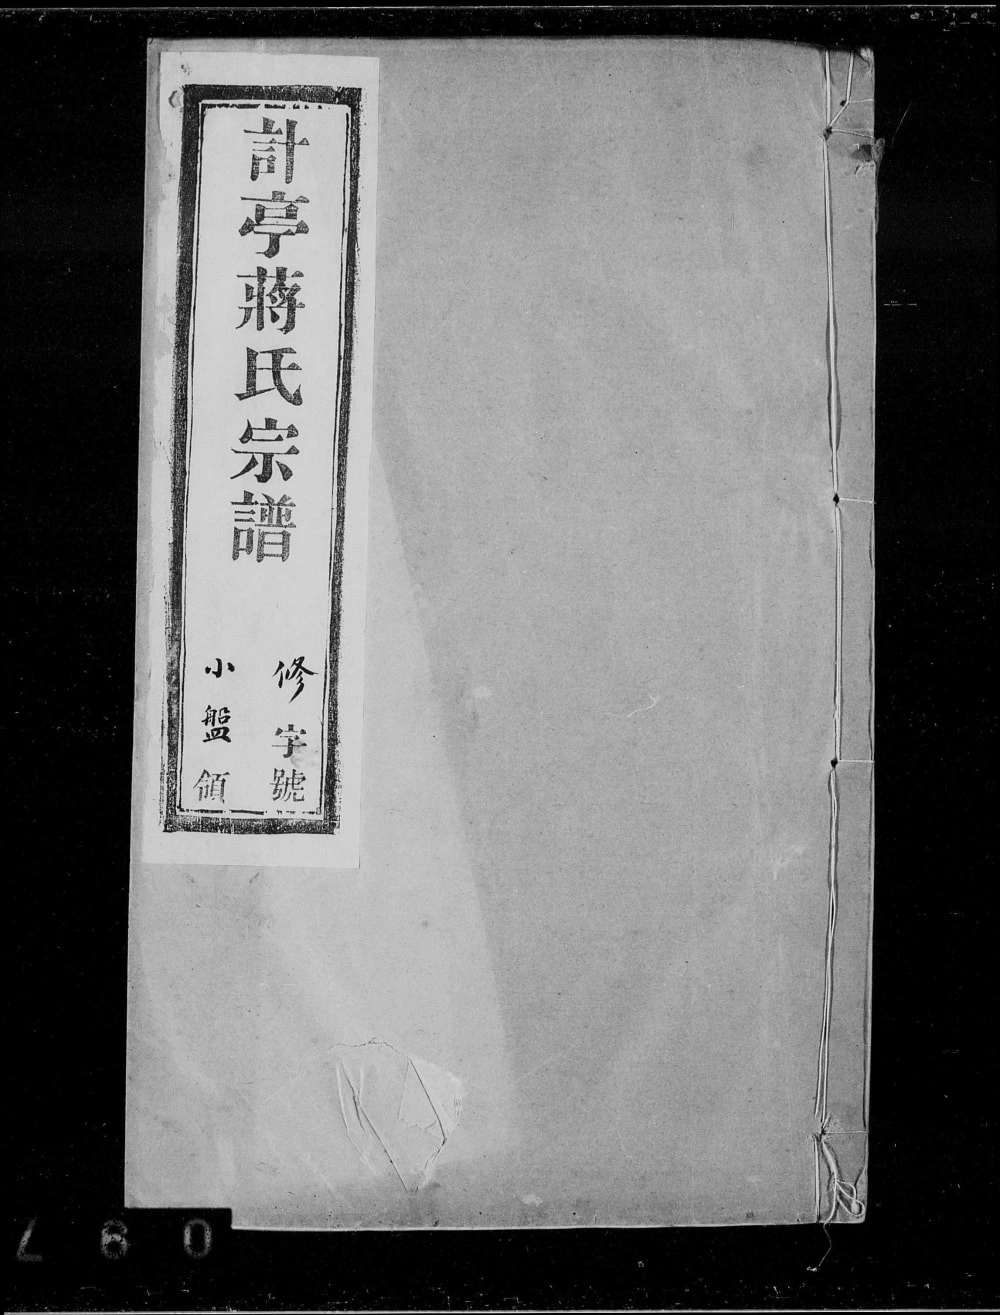 計亭蔣氏宗譜
修字號
小盤領